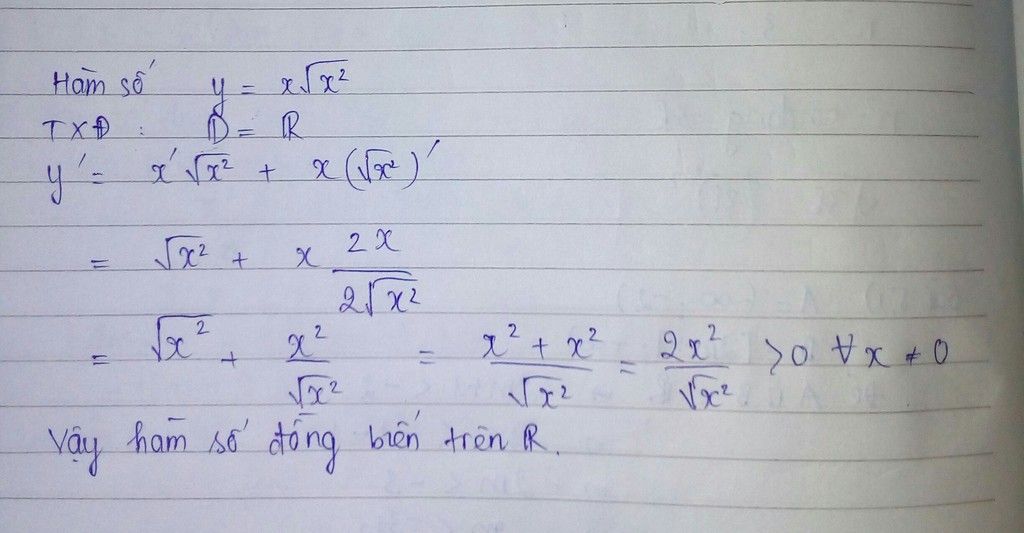 Hàm số y = x√x²
TXĐ : D = ℝ
y' = x'√x² + x(√x²)'
= √x² + x 2x/2√x²
= √x² + x²/√x² = x² + x²/√x² = 2x²/√x² > 0 ∀x ≠ 0
Vậy hàm số đồng biến trên ℝ.